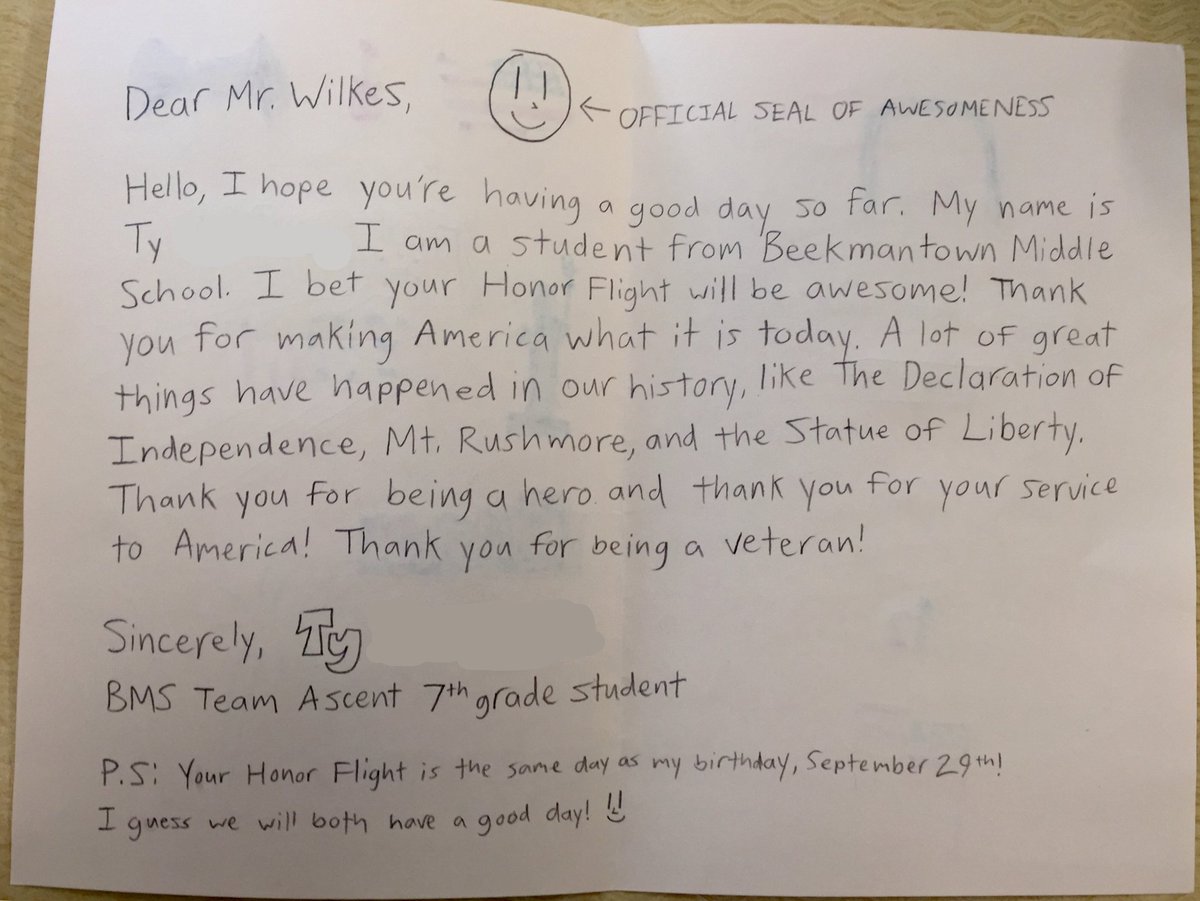 Dear Mr. Wilkes,
← OFFICIAL SEAL OF AWESOMENESS
Hello, I hope you're having a good day so far. My name is
Ty I am a student from Beekmantown Middle
School. I bet your Honor Flight will be awesome! Thank
you for making America what it is today. A lot of great
things have happened in our history, like The Declaration of
Independence, Mt. Rushmore, and the Statue of Liberty.
Thank you for being a hero and thank you for your service
to America! Thank you for being a veteran!
Sincerely, Ty
BMS Team Ascent 7th grade student
P.S: Your Honor Flight is the same day as my birthday, September 29th!
I guess we will both have a good day!